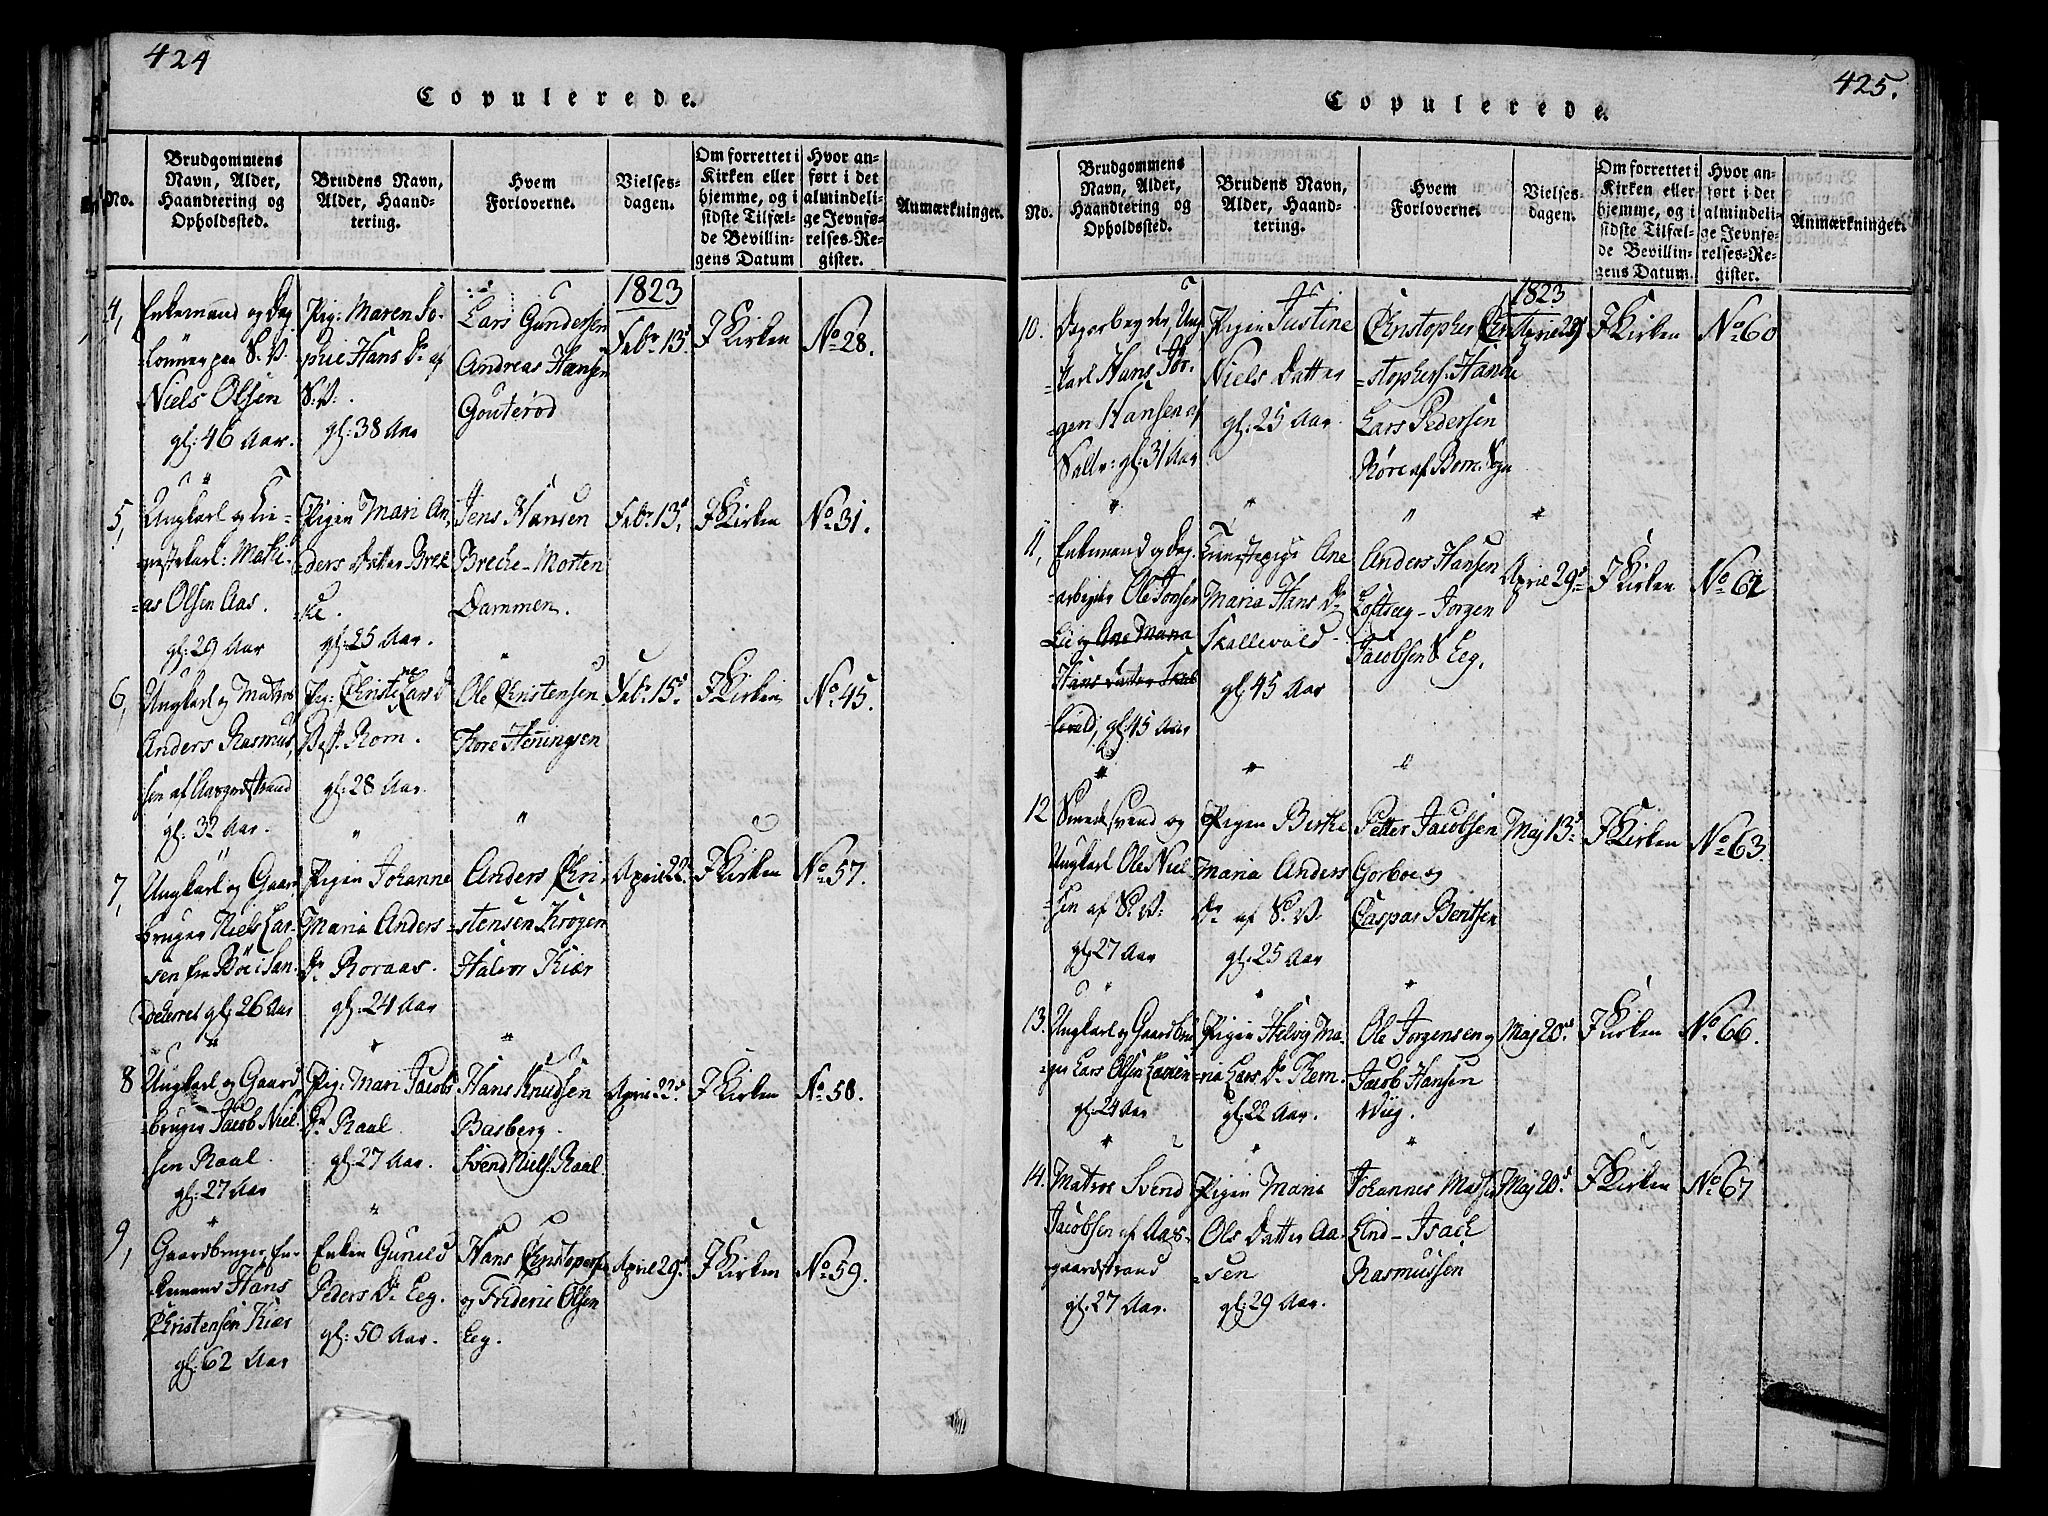 424
Copulerede.
No.
Brudgommens
Navn, Alder,
Haandtering og
Opholdssted.
Brudens Navn,
Alder, Haand-
tering.
Hvem
Forloverne.
Vielses-
dagen.
Om forrettet i
Kirken eller
hjemme, og i
sidste Tilfæl-
de Bevillin-
gens Datum
Hvor an-
ført i det
almindeli-
ge Jevnfø-
relses-Re-
gister.
Anmærkninger.
1823
4,
Enkemand og Dag
-lønner paa S. V.
Niels Olsen
gl: 46 Aar.
Pig: Maren So-
phie Hans Dr af
S: V: .
gl: 38 Aar
Lars Gundersen
Andreas Hansen
Gouterød
Febr 13.
I Kirken
No 28.
5,
Ungkarl og Tie-
nestekarl: Mathi-
-as Olsen Aas.
gl: 29 Aar
Pigen Mari An-
ders Datter Brek
ke.
gl: 25 Aar.
Jens Hansen
Breche - Morten
Dammen.
Febr 13.
I Kirken
No 31.
6,
Ungkarl og Matros
Anders Rasmus-
sen af Aasgrdstrand
gl: 32 Aar.
Pig: Christi Lars D
Rom.
gl: 28 Aar.
Ole Christensen
Thore Henningsen
Febr 15.
I Kirken
No 45.
7,
Ungkarl og Gaard
bruger Niels Lar-
sen fra Bøe i San-
deherret gl: 26 Aar
Pigen Johanne
Maria Anders
Dr Roraas.
gl: 24 Aar
Anders Chri-
-stensen Krogen
Halvor Kiær
April 22.
I Kirken
No 57.
8
Ungkarl og Gaard
-bruger Jacob Niel-
sen Raal.
gl: 27 Aar
Pig: Mari Jacobs
Dr Raal.
gl: 27 Aar.
Hans Knudsen
Basberg.
Svend Niels. Raal
April 22.
I Kirken
No 58.
9,
Gaardbruger, En-
kemand Hans
Christensen Kiær
gl: 62 Aar
Enken Gunild
Peders Dr Eeg.
gl: 50 Aar.
Hans Christophersen
og Frideric Olsen
Eeg.
April 29.
I Kirken
No 59.
425.
Copulerede.
No.
Brudgommens
Navn, Alder,
Haandtering og
Opholdssted.
Brudens Navn,
Alder, Haand-
tering.
Hvem
Forloverne.
Vielses-
dagen.
Om forrettet i
Kirken eller
hjemme, og i
sidste Tilfæl-
de Bevillin-
gens Datum.
Hvor an-
ført i det
almindeli-
ge Jevnfø-
relses-Re-
gister.
Anmærkninger.
1823
10.
Dagarbeyder, Ung
-karl Hans Jør-
-gen Hansen af
gl: 31 Aar
Pigen Justine
Niels Datter
gl: 25 Aar.
Christopher Chri
-stophers. Hane
Lars Pedersen
Røre af Born: Sogn
April 29
I Kirken
No 60
11,
Enkemand og Dag
-arbeyder Ole Jonsen
Lie og Ane Maria
Hans Datter Skal
levold, gl: 45 Aar
Tienestepige Ane
Maria Hans Dr
Skallevold
gl: 45 Aar
Anders Hansen
Loftseeg - Jørgen
Jacobsen Eeg.
April 29
I Kirken
No 62
12
Smedsvend og
Ungkarl Ole Niel-
sen af S: V:
gl: 27 Aar
Pigen Birthe
Maria Anders
Dr af S: V:
gl: 25 Aar
Petter Jacobsen
Gorboe og
Caspar Bentsen
Maj 13
I Kirken
No 63.
13.
Ungkarl og Gaardbru
-ger Lars Olsen
gl: 24 Aar
Pigen Helvig Ma-
ria Lars Dr Rom.
gl: 22 Aar.
Ole Jørgensen og
Jacob Hansen
Wiig.
Maj 20.
I Kirken
No 66.
14.
Matros Svend
Jacobsen af Aas-
gaardstrand
gl: 27 Aar.
Pigen Maria
Ols Datter Aa-
-sen
gl: 29 Aar.
Johannes Madsen
Lind - Isach
Rasmussen
Maj 20.
I Kirken
No 67